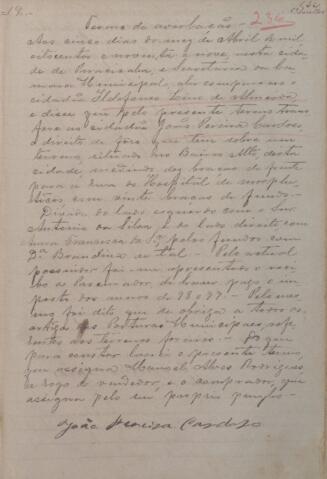 Termo de averbação 236
Aos cinco dias do mez de Abril de mil
oitocentos e noventa e nove, nesta cida-
de de Piracicaba, e Secretaria da Ca-
mara Municipal, ahi compareceu o
cidadão Ildefonso Leme de Almeida
e disse que pelo presente termo trans-
fere ao cidadão João Pereira Cardoso,
o direito de fôro que tem sobre um
terreno, situado no Bairro Alto, desta
cidade, medindo dez braças de frente
para a Rua do Hospital de morphe-
ticos, com vinte braças de fundo.
Divide do lado esquerdo com o Snr.
Antonio da Silva e do lado direito com
Francisca da pelos fundos com
Dª. Brandina de tal. Pelo actual
possuidor foi me apresentado o reci-
bo de haver pago o im-
posto dos annos de 98 e 99. Pelo mes-
mo foi dito que se obriga a todos os
artigos das Posturas Municipaes, refe-
rentes aos terrenos foreiros. Do que
para constar lavrei o presente termo,
que assigna Manoel Alves Rodrigues
a rogo do vendedor, e o comprador, que
assigna pelo seu proprio punho.
João Pereira Cardoso